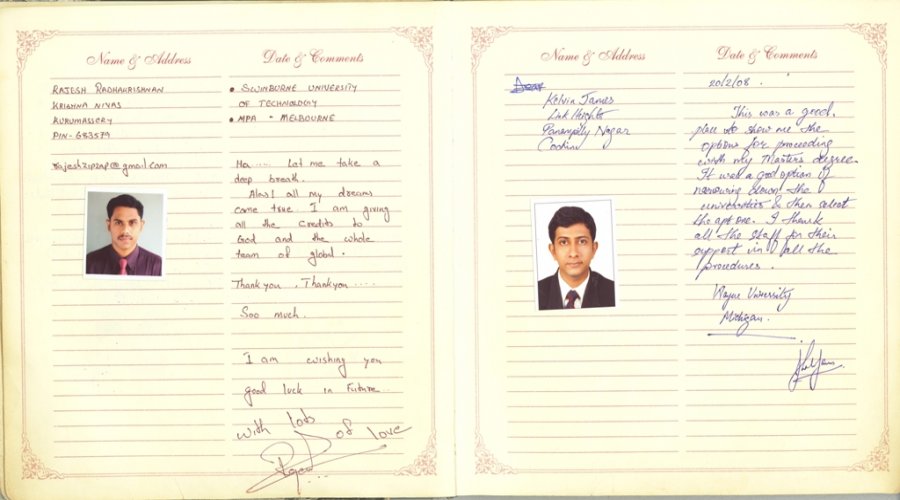 Name & Address
RAJESH RADHAKRISHNAN
KRISHNA NIVAS
KURUMASSERY
PIN- 683579
rajeshzipzap@gmail.com
Date & Comments
• SWINBURNE UNIVERSITY
OF TECHNOLOGY
• MPA - MELBOURNE
Ha..... Let me take a
deep breath.
Alas! all my dreams
came true. I am giving
all the credits to
God and the whole
team of global.
Thank you, Thank you.....
Soo much.
I am wishing you
Good luck in Future
with lots
of love
Name & Address
Dear
Kelvin James
Link Heights
Panampilly Nagar
Cochin
Date & Comments
20/2/08.
This was a good
place to show me the
options for proceeding
with my Master's degree.
It was a good option of
narrowing down the
universities & then select
the apt one. I thank
all the staff for their
support in all the
procedures.
Wayne University
Michigan.